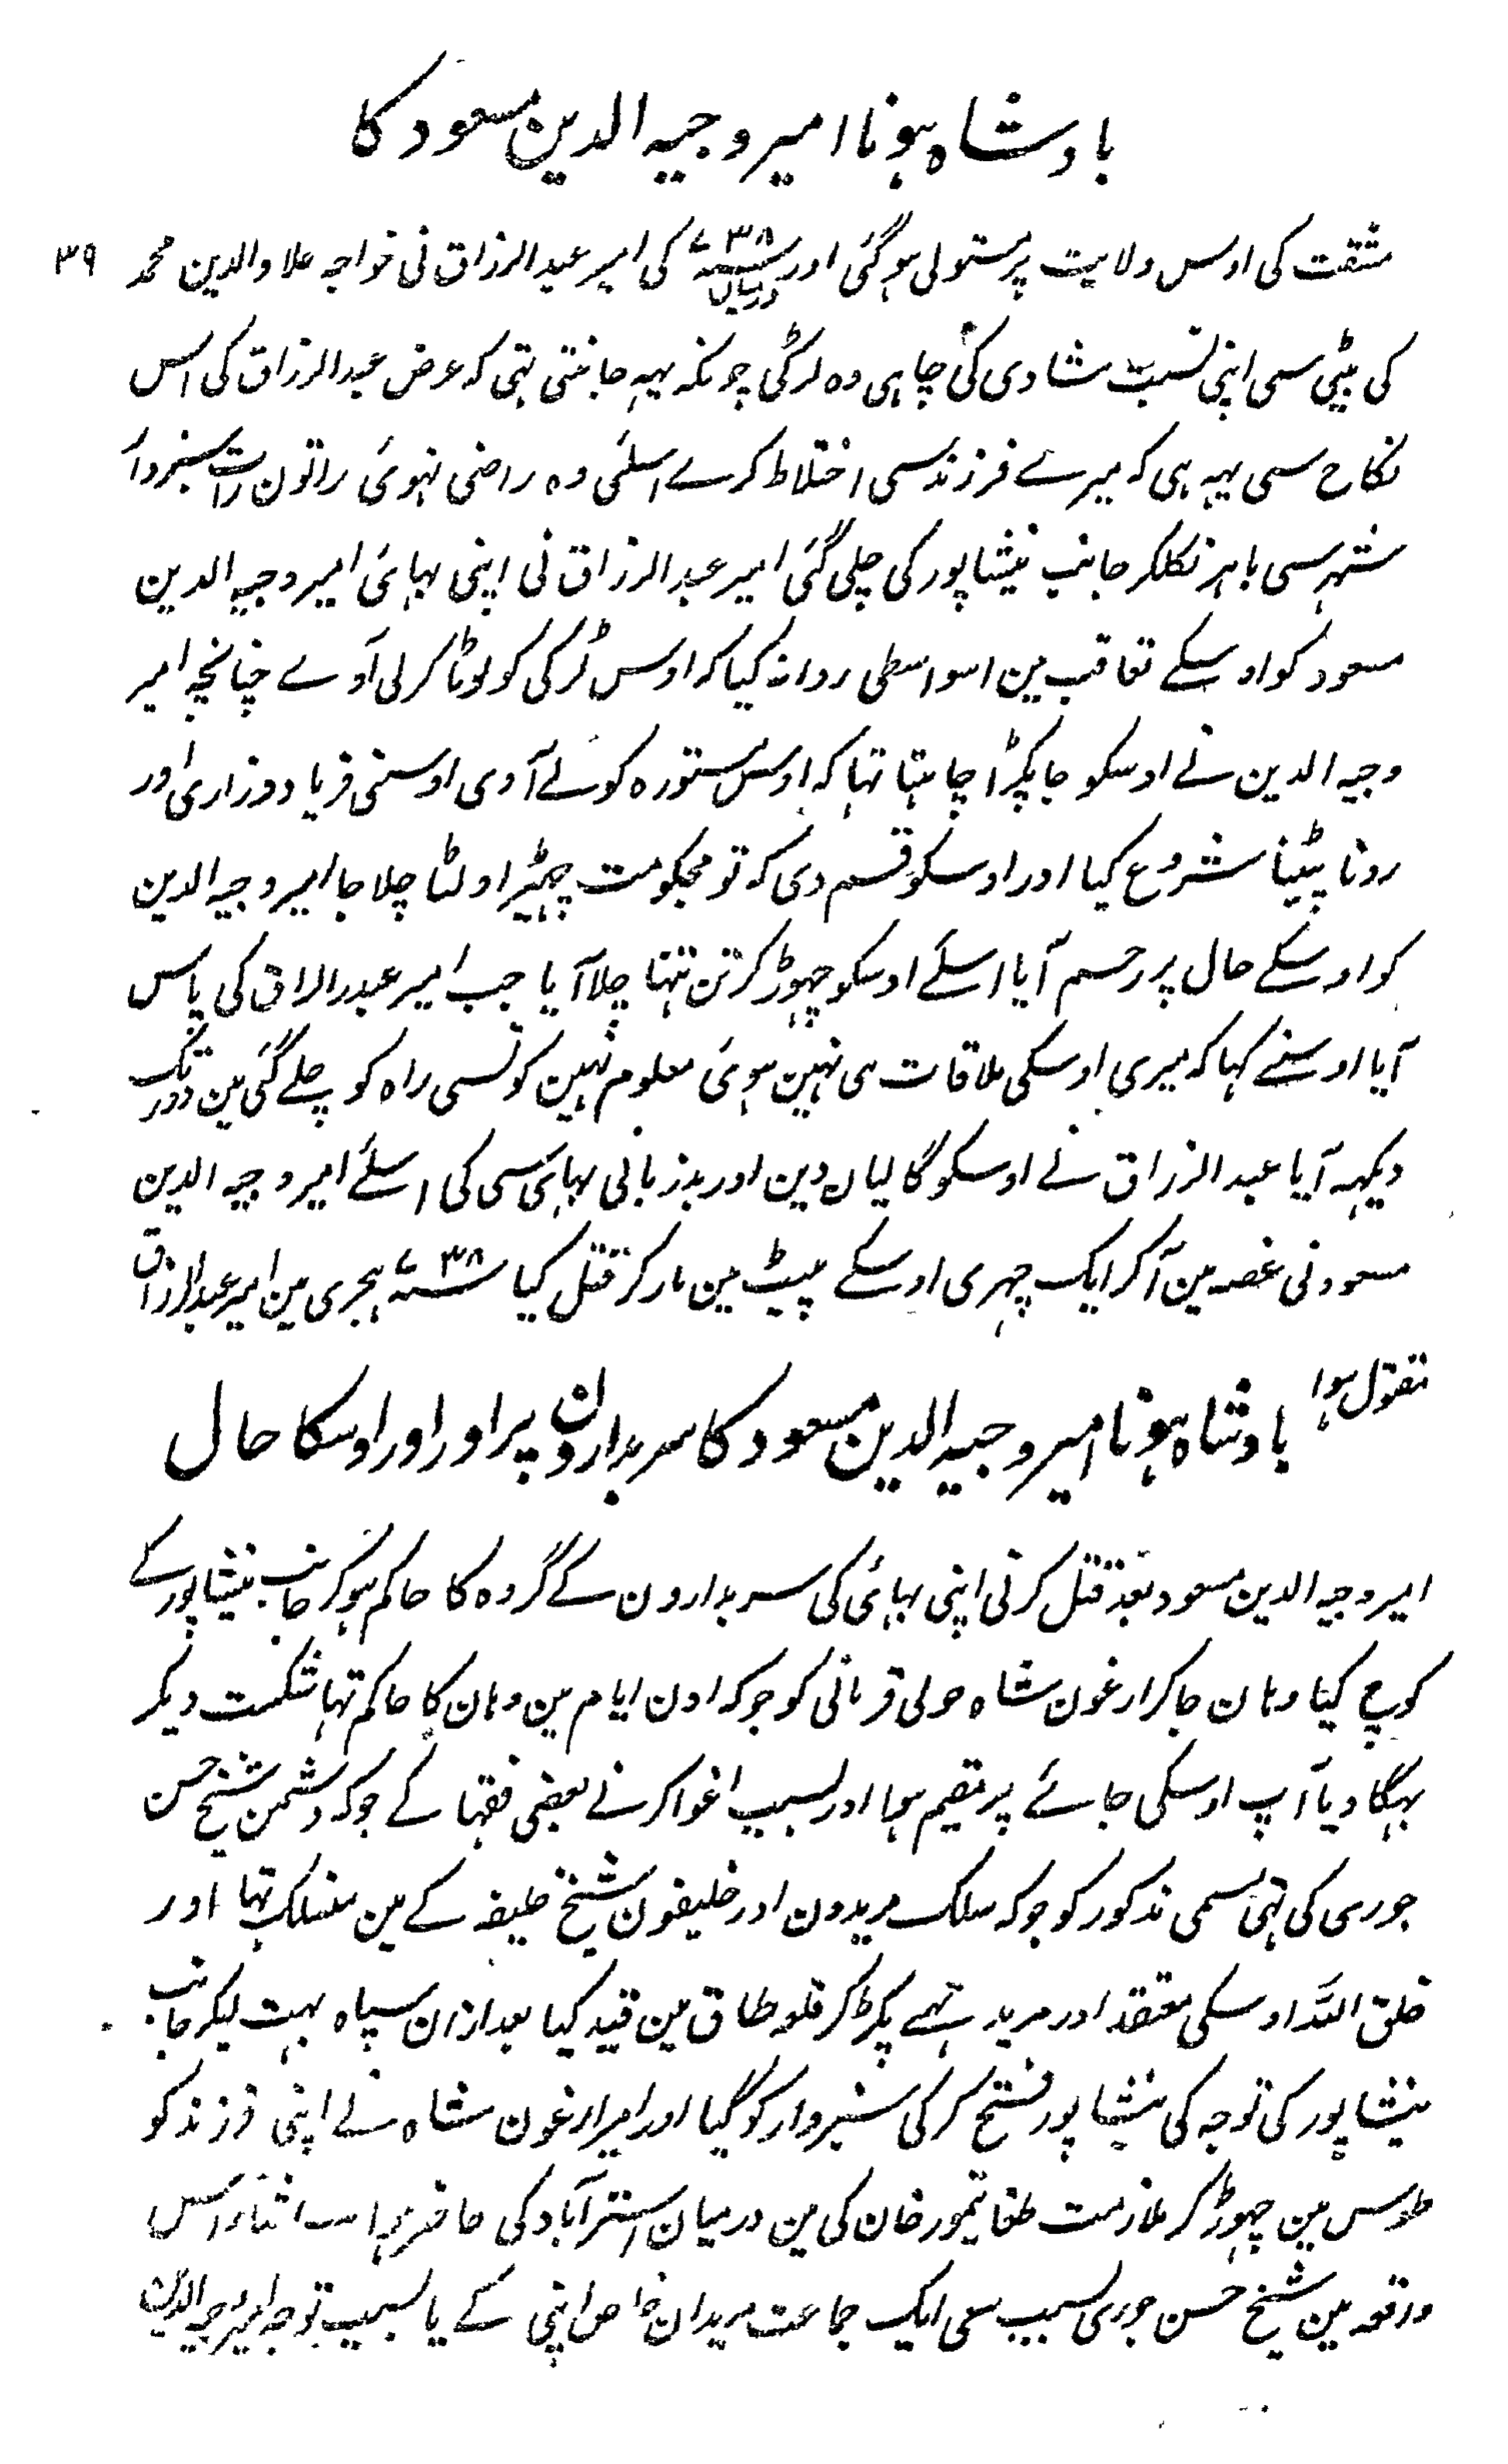 بادشاہ ہونا امیر وجیہ الدین مسعود کا
۳۹
مشقت کی اوس ولایت پر مستولی ہوگئی اور درمیان ۷۳۸ کی امیر عبدالرزاق نی خواجہ علاوالدین محمد
کی بیٹی سی اپنی نسبت شادی کی چاہی وہ لرکی چونکہ یہہ جانتی تہی کہ غرض عبدالرزاق کی اس
نکاح سی یہہ ہی کہ میرے فرزند سی اختلاط کرے اسلئی وہ راضی نہوئی راتون رات سبزوار
شہر سی باہر نکلکر جانب نیشاپور کی چلی گئی امیر عبدالرزاق نی اپنی بہائی امیر وجیہ الدین
مسعود کو اوسکے تعاقب مین اسواسطی روانہ کیا کہ اوس لڑکی کو لوٹا کر لی آوے چنانچہ امیر
وجیہ الدین نے اوسکو جا پکڑا چاہتا تہا کہ اوس مستورہ کو لے آوی اوسنی فریاد و زاری اور
رونا پیٹنا شروع کیا اور اوسکو قسم دی کہ تو مجکو مت چہیڑ اولٹا چلا جا امیر وجیہ الدین
کو اوسکے حال پر رحم آیا اسلئے اوسکو چہوڑ کر تن تنہا چلا آیا جب امیر عبدالراق کی پاس
آیا اوسنے کہا کہ میری اوسکی ملاقات ہی نہین ہوئی معلوم نہین کونسی راہ کو چلے گئی مین دور تک
دیکہہ آیا عبدالرزاق نے اوسکو گالیان دین اور بدزبانی بہائی سی کی اسلئے امیر وجیہ الدین
مسعود نی غصہ مین آکر ایک چہری اوسکے پیٹ مین مار کر قتل کیا ۷۳۸ سنہ ہجری مین امیر عبدالرزاق
مقتول ہوا
بادشاہ ہونا امیر وجیہ الدین مسعود کا سربدارون پر اور اور اوسکا حال
امیر وجیہ الدین مسعود بعد قتل کرنی اپنی بہائی کی سربدارون کے گروہ کا حاکم ہوکر جانب نیشاپور کے
کوچ کیا وہان جاکر ارغون شاہ جولی قربانی کو جو کہ اون ایام مین وہان کا حاکم تہا شکست دیکر
بہگا دیا آپ اوسکی جائے پر مقیم ہوا اور بسبب اغوا کرنے بعضی فقہا کے جو کہ دشمن شیخ حسن
جوری کی تہی مسمی مذکور کو جو کہ سلک مریدون اور خلیفون شیخ خلیفہ کے مین منسلک تہا اور
خلق اللہ اوسکی معتقد اور مرید تہے پکڑ کر قلعہ طاق مین قید کیا بعد ازان سپاہ بہت لیکر جانب
نیشاپور کی توجہ کی نیشاپور فتح کرکی سبزوار کو گیا اور امیر ارغون شاہ نے اپنی فرزند کو
طوس مین چہوڑ کر ملازمت طغا تیمور خان کی مین درمیان استرآباد کی حاضر ہوا اثناء اس
واقعہ مین شیخ حسن جوری بسبب سعی ایک جماعت مریدان خاص اپنی کے یا بسبب توجہ امیر وجیہ الدین